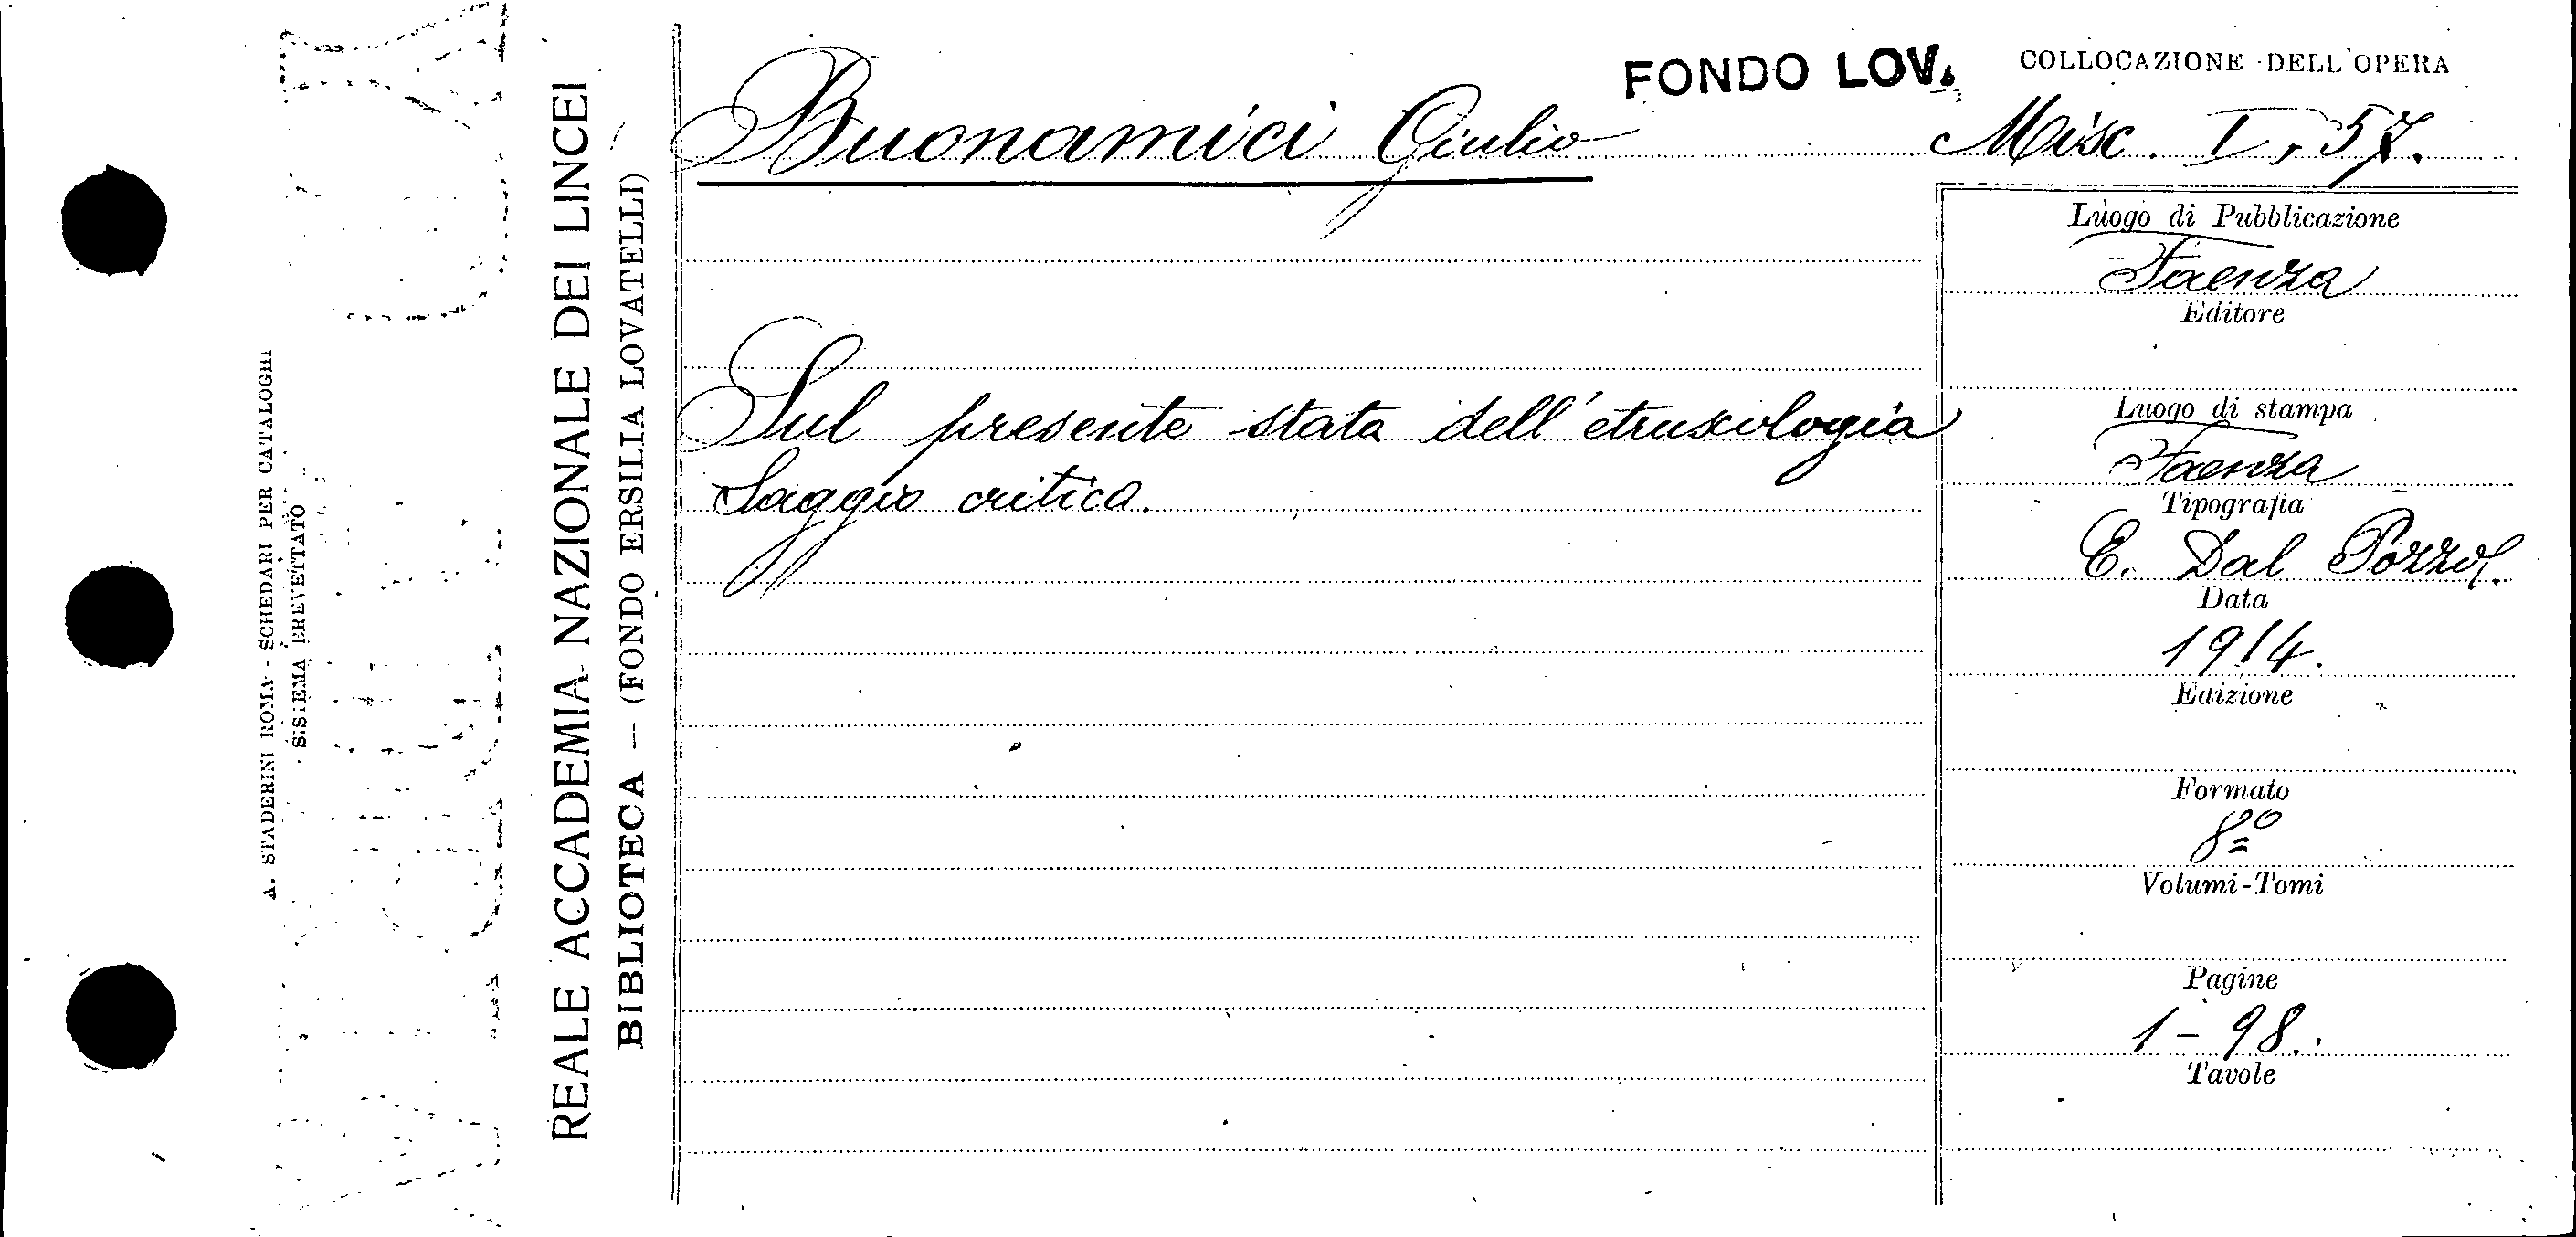 A. STADERINI ROMA - SCHEDARI PER CATALOGHI
SISTEMA BREVETTATO
REALE ACCADEMIA NAZIONALE DEI LINCEI
BIBLIOTECA — (FONDO ERSILIA LOVATELLI)
FONDO LOV.
COLLOCAZIONE DELL'OPERA
Buonamici Giulio
Misc. I, 57.
Sul presente stata dell'etruscologia
Saggio critica.
Luogo di Pubblicazione
Faenza
Editore
Luogo di stampa
Faenza
Tipografia
E. Dal Pozzo.
Data
1914.
Edizione
Formato
8º
Volumi-Tomi
Pagine
1-98.
Tavole